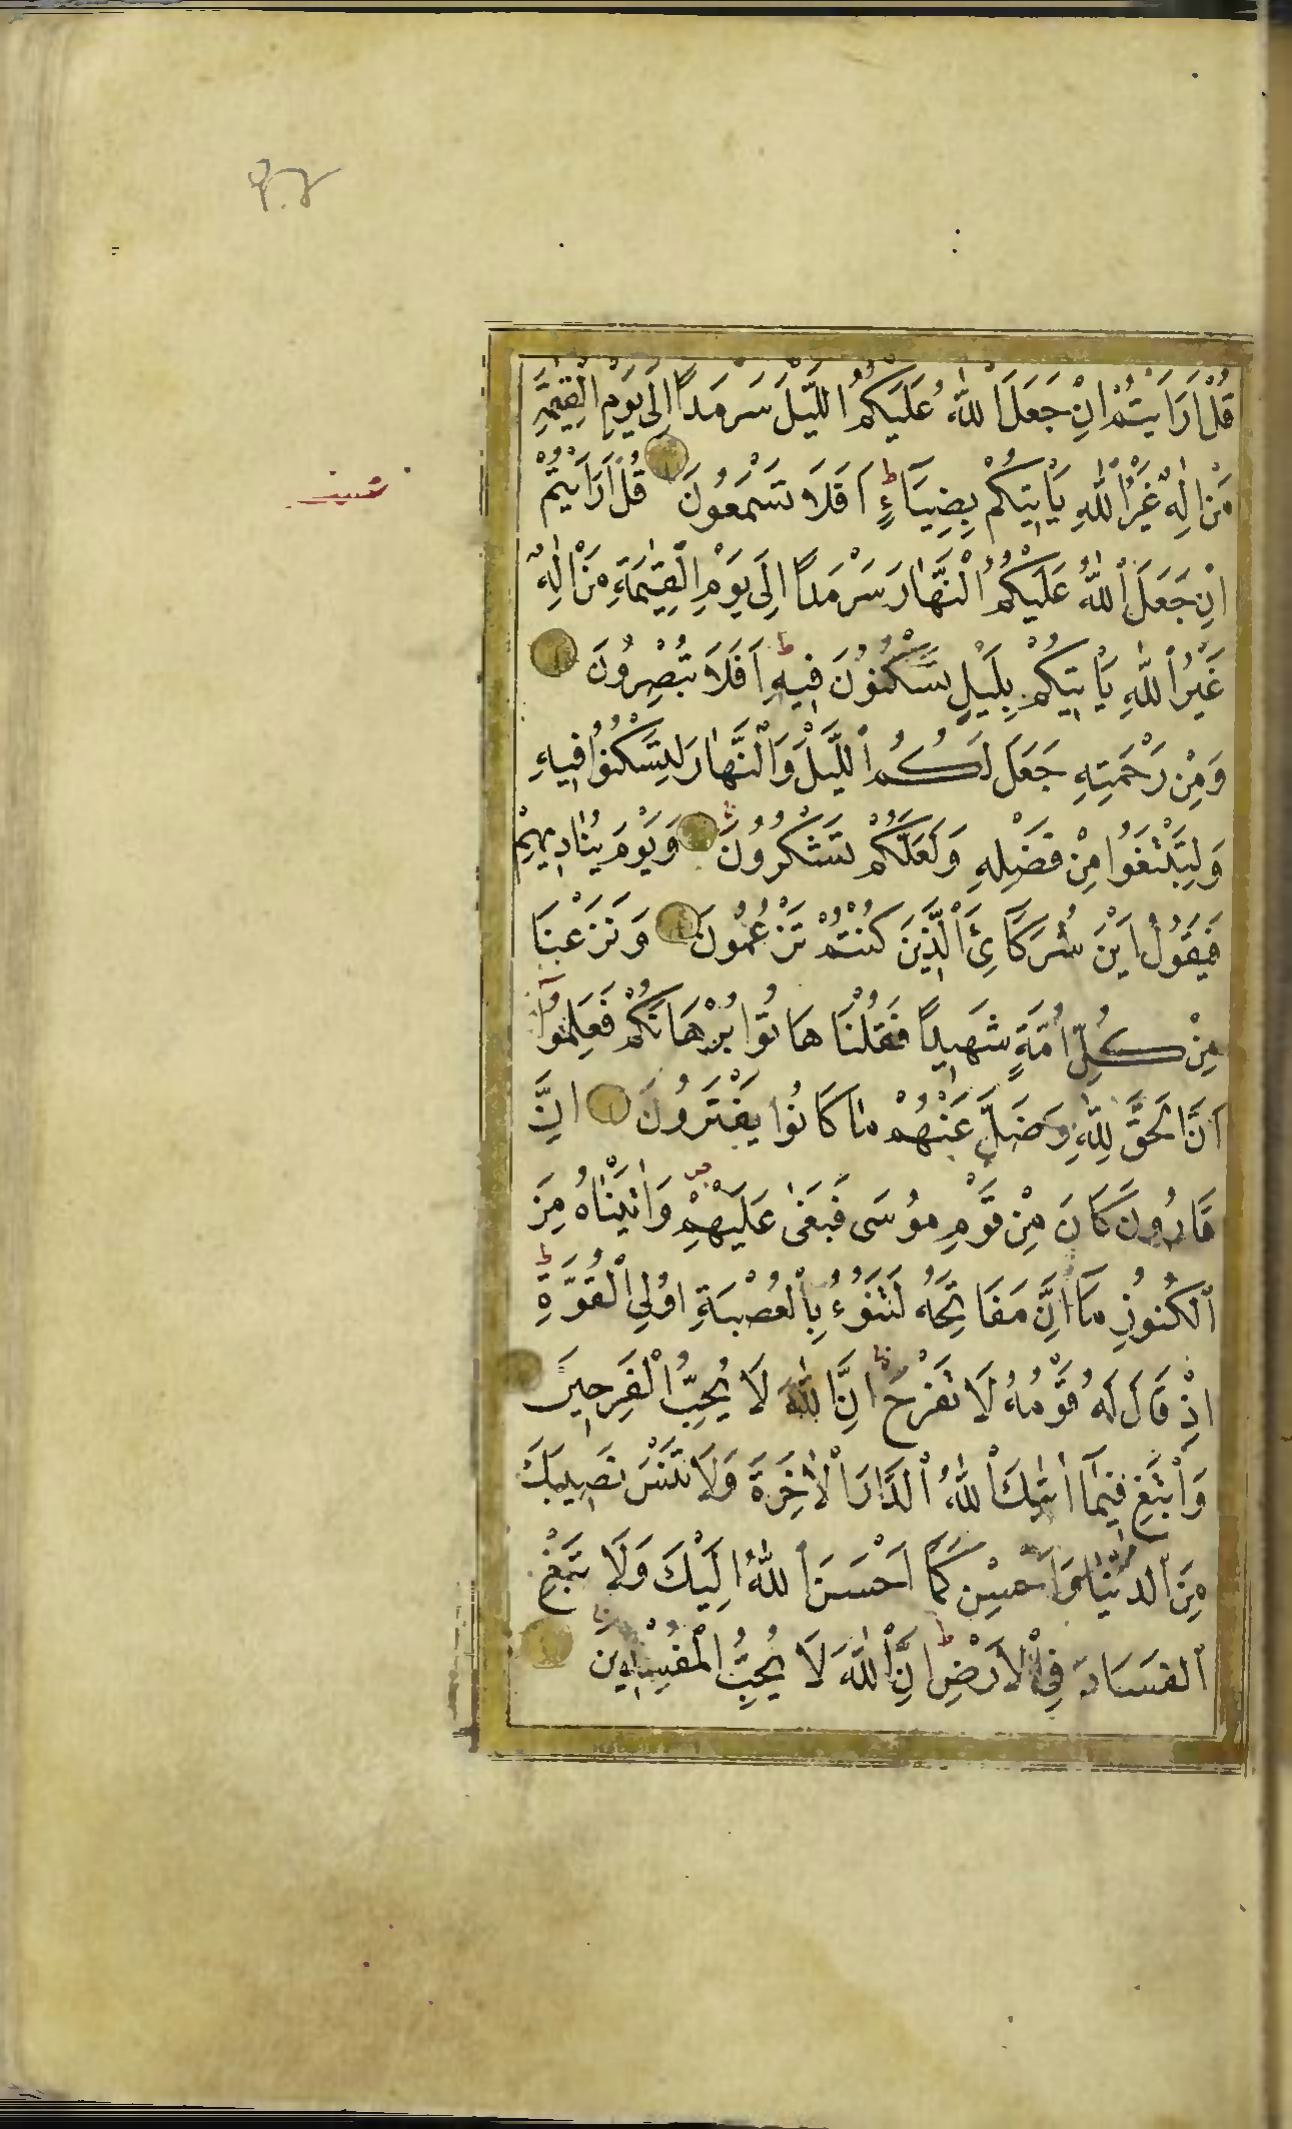 قُلْ اَرَاَيْتُمْ اِنْ جَعَلَ اللّٰهُ عَلَيْكُمُ الَّيْلَ سَرْمَدًا اِلٰى يَوْمِ الْقِيٰمَةِ
مَنْ اِلٰهٌ غَيْرُ اللّٰهِ يَاْتِيكُمْ بِضِيَاءٍ ط اَفَلَا تَسْمَعُونَ قُلْ اَرَاَيْتُمْ
اِنْ جَعَلَ اللّٰهُ عَلَيْكُمُ النَّهَارَ سَرْمَدًا اِلٰى يَوْمِ الْقِيٰمَةِ مَنْ اِلٰهٌ
غَيْرُ اللّٰهِ يَاْتِيكُمْ بِلَيْلٍ تَسْكُنُونَ فِيهِ ط اَفَلَا تُبْصِرُونَ
وَمِنْ رَحْمَتِهِ جَعَلَ لَكُمُ الَّيْلَ وَالنَّهَارَ لِتَسْكُنُوا فِيهِ
وَلِتَبْتَغُوا مِنْ فَضْلِهِ وَلَعَلَّكُمْ تَشْكُرُونَ وَيَوْمَ يُنَادِيهِمْ
فَيَقُولُ اَيْنَ شُرَكَائِىَ الَّذِينَ كُنْتُمْ تَزْعُمُونَ وَنَزَعْنَا
مِنْ كُلِّ اُمَّةٍ شَهِيدًا فَقُلْنَا هَاتُوا بُرْهَانَكُمْ فَعَلِمُوا
اَنَّ الْحَقَّ لِلّٰهِ وَضَلَّ عَنْهُمْ مَا كَانُوا يَفْتَرُونَ اِنَّ
قَارُونَ كَانَ مِنْ قَوْمِ مُوسَى فَبَغٰى عَلَيْهِمْ وَاٰتَيْنَاهُ مِنَ
الْكُنُوزِ مَا اِنَّ مَفَاتِحَهُ لَتَنُوءُ بِالْعُصْبَةِ اُولِى الْقُوَّةِ ط
اِذْ قَالَ لَهُ قَوْمُهُ لَا تَفْرَحْ اِنَّ اللّٰهَ لَا يُحِبُّ الْفَرِحِينَ
وَابْتَغِ فِيمَا اٰتٰيكَ اللّٰهُ الدَّارَ الْاٰخِرَةَ وَلَا تَنْسَ نَصِيبَكَ
مِنَ الدُّنْيَا وَاَحْسِنْ كَمَا اَحْسَنَ اللّٰهُ اِلَيْكَ وَلَا تَبْغِ
الْفَسَادَ فِى الْاَرْضِ ط اِنَّ اللّٰهَ لَا يُحِبُّ الْمُفْسِدِينَ